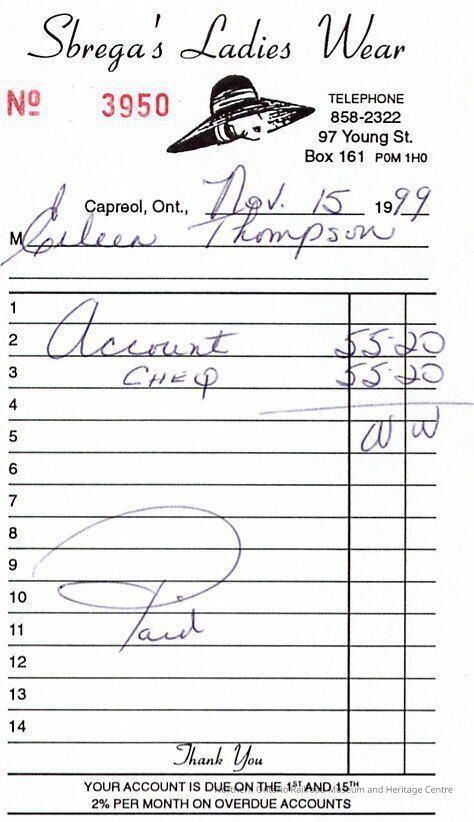 Sbrega's Ladies Wear
Nº 3950
TELEPHONE
858-2322
97 Young St.
Box 161 P0M 1H0
Capreol, Ont., Nov. 15 1999
M Eileen Thompson
1
2 Account 55.20
3 CHEQ 55.20
4
5
6
7
8
9
10
11 Paid
12
13
14
Thank You
YOUR ACCOUNT IS DUE ON THE 1ST AND 15TH
Northern Ontario Railroad Museum and Heritage Centre
2% PER MONTH ON OVERDUE ACCOUNTS